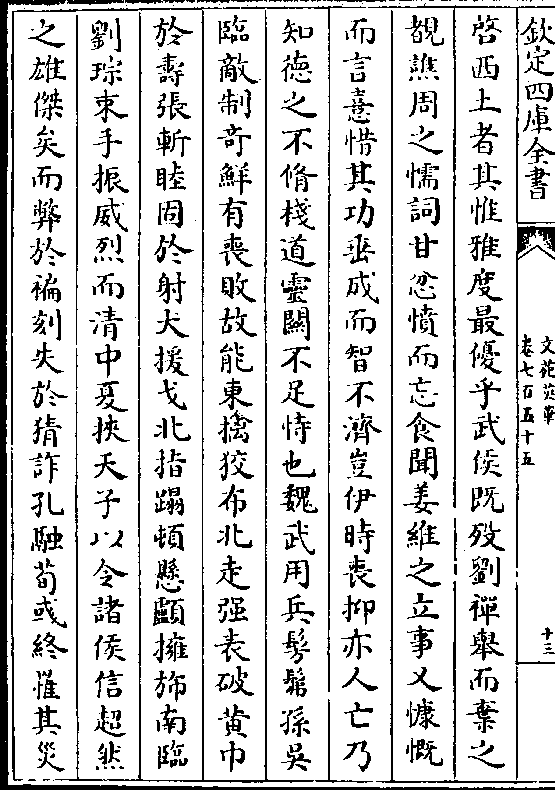 欽定四庫全書
文苑英華
卷七百五十五
十三
啓西土者其惟雅度最優乎武侯既歿劉禪舉而棄之
覩譙周之懦詞甘忿憤而忘食聞姜維之立事乂慷慨
而言憙惜其功垂成而智不濟豈伊時喪抑亦人亡乃
知德之不脩棧道靈關不足恃也魏武用兵髣髴孫吳
臨敵制竒鮮有喪敗故能東擒狡布北走强袁破黄巾
於壽張斬眭固於射犬援戈北指蹋頓懸顱擁旆南臨
劉琮束手振威烈而清中夏挾天子以令諸侯信超然
之雄傑矣而弊於褊刻失於猜詐孔融荀彧終罹其災